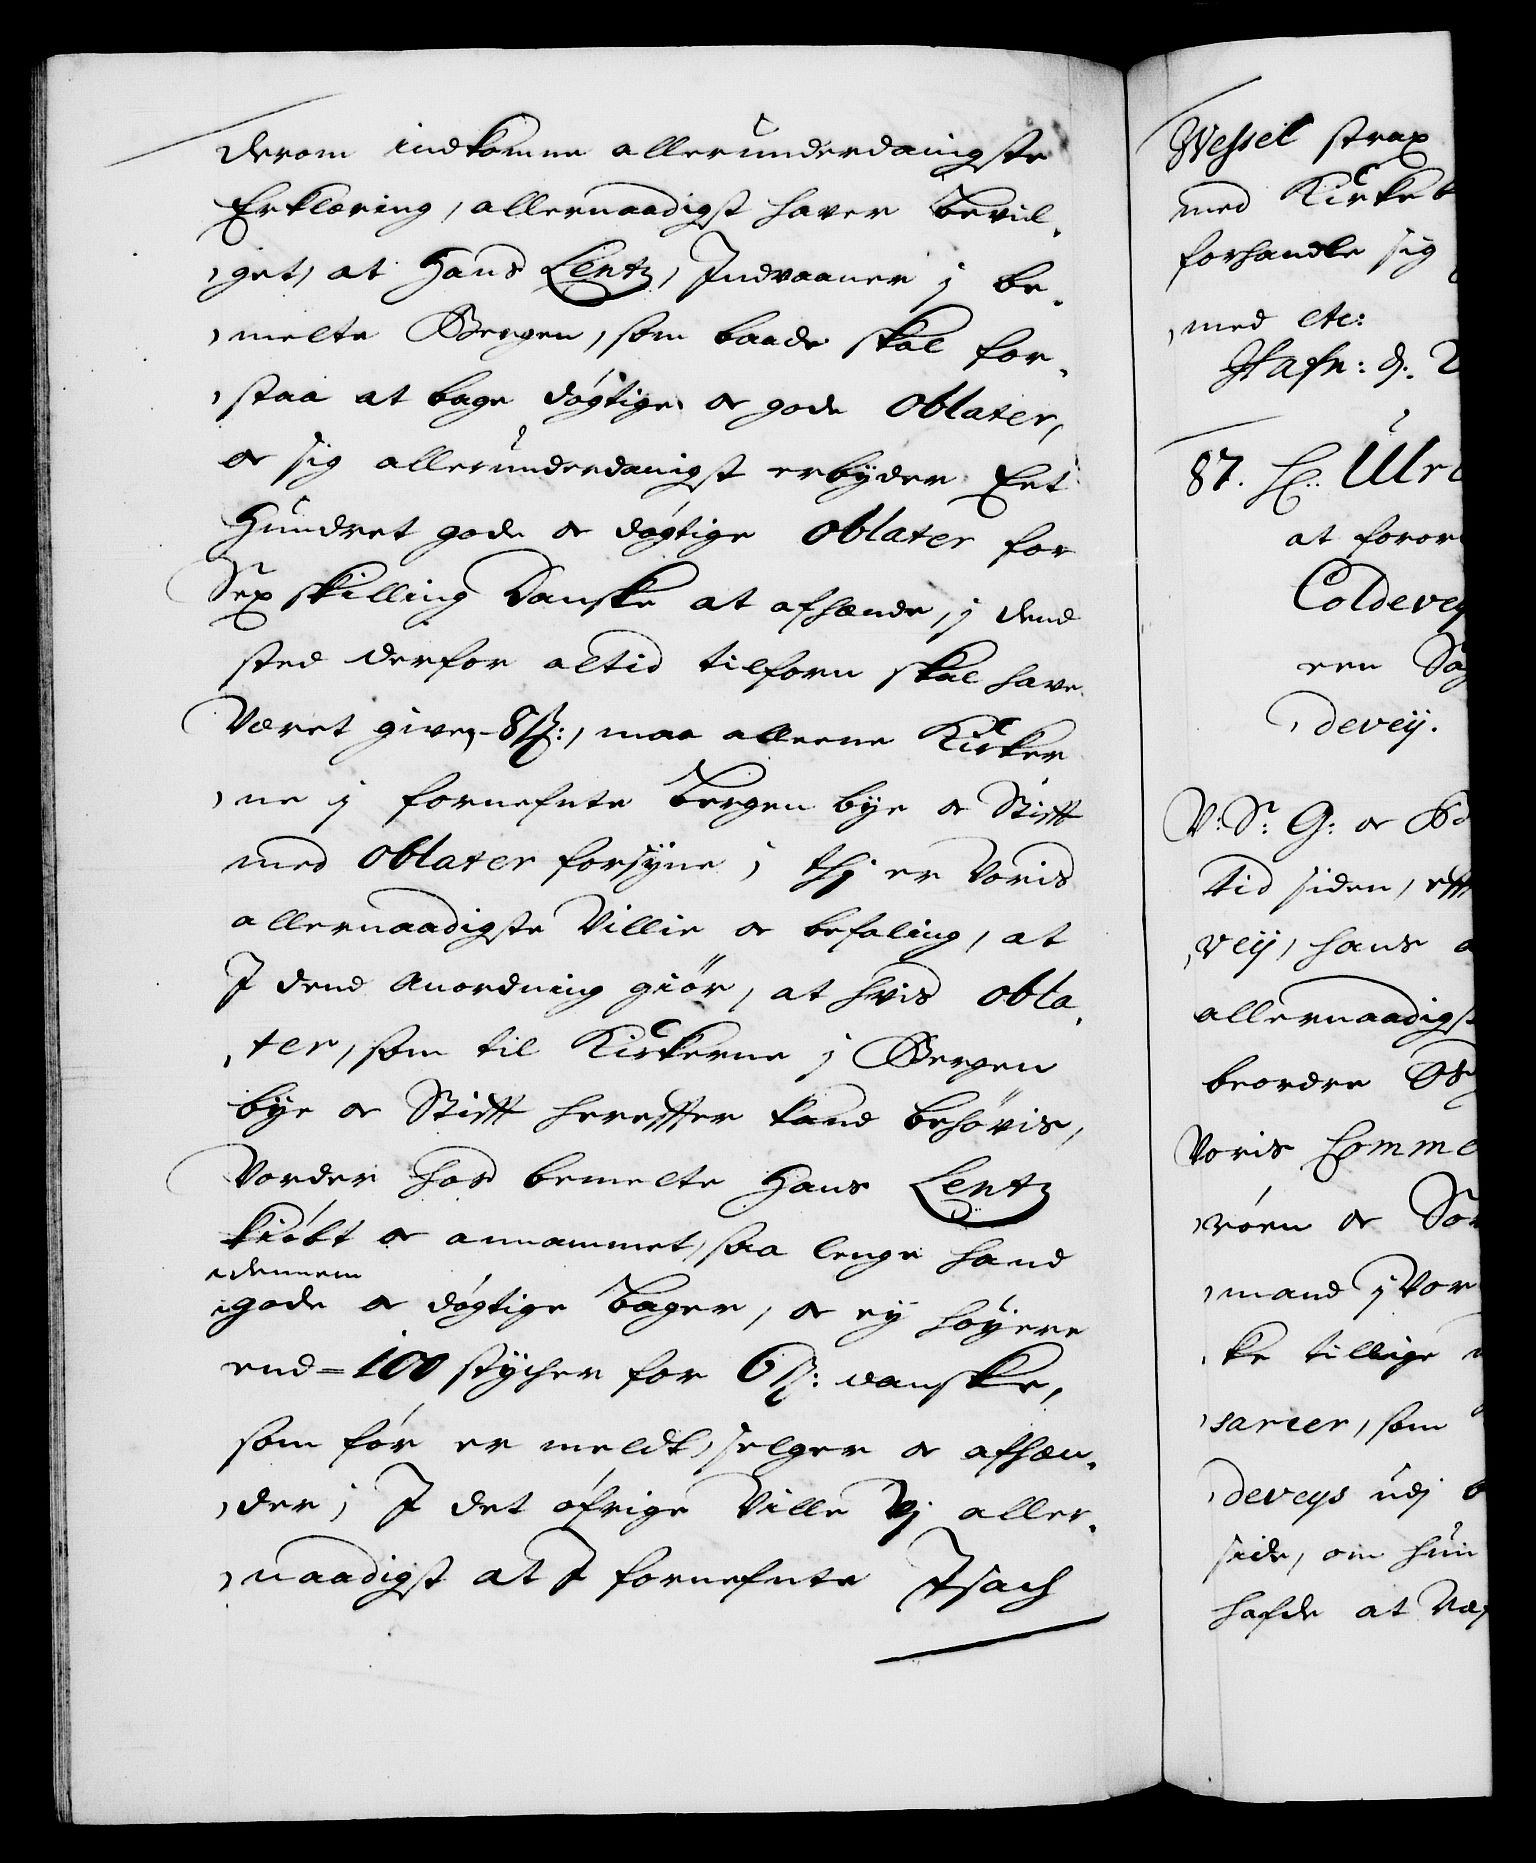 derom indkomne allerunderdanigste
Erklæring, allernaadigst haver bevil-
get, at Hans Lentz, Indvaaner j be-
melte Bergen, som baade skal for-
staa at bage dögtige og gode oblater,
og sig allerunderdanigst erbyder Eet
Hundret gode og dögtige oblater for
Sex skilling Danske at afhænde, j dend
sted derfor altid tilforn skal have
Været given 8 ß:, maa alleene Kirker
ne j fornefnte Bergen bye og Stift
med oblater forsyne; thj er Voris
allernaadigste Villie og befaling, at
I dend Anordning giör, at hvis obla-
ter, som til Kirkerne j Bergen
bye og Stift herefter kand behövis,
Vorder hos bemelte Hans Lentz
kiöbt og annammet, saa lenge hand
dennem
gode og dögtige bager, og ey höyere
end = 100 stycher for 6 ß: danske,
som för er meldt, selger og afhæn-
der; I det öfrige Ville Vj aller-
naadigst at I fornefnte Isach
Wessel strax
med Kirkeb
forhandle sig
med etc:
Hafn: d: 2
87. Hr: Ulr
at foror
Coldevey
een Sag
devey.
V: Sr: G: og B
tid siden, eft
vey, hans
allernaadigst
beordre
Voris Homme
röen og Sor
mand j Vor
ke tillige
sarier, som
deveys udj b
side, om hun
hafde at Væ